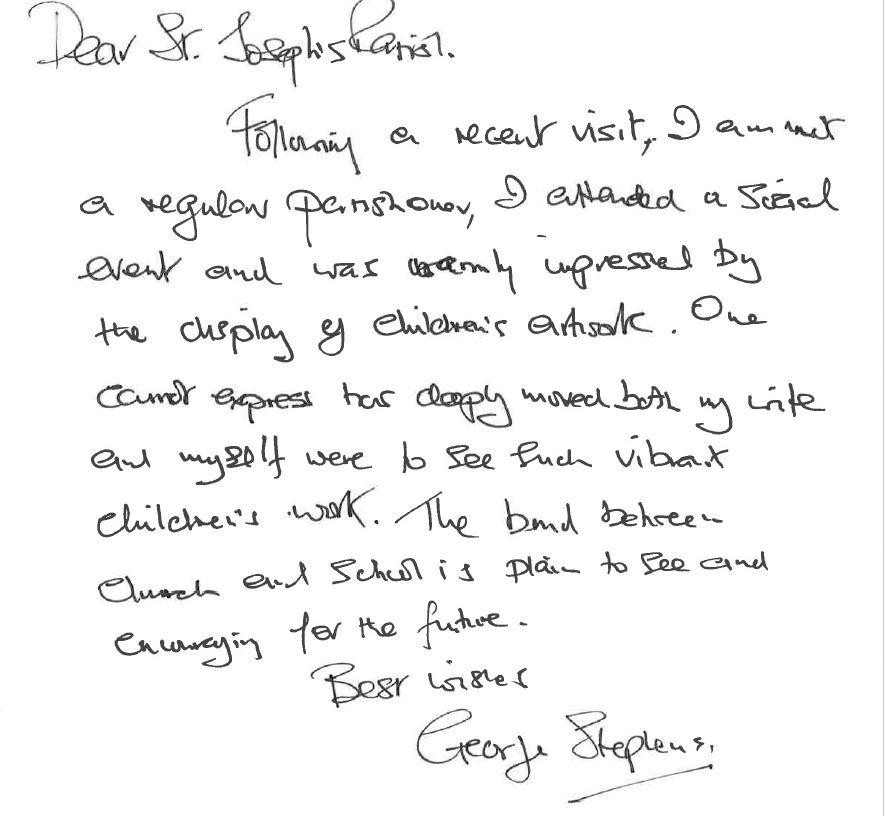 Dear St. Joseph's Parish.
Following a recent visit, I am not
a regular parishoner, I attended a social
event and was warmly impressed by
the display of children's artwork. One
cannot express how deeply moved both my wife
and myself were to see such vibrant
children's work. The bond between
church and school is plain to see and
encouraging for the future.
Best wishes
George Stephens.